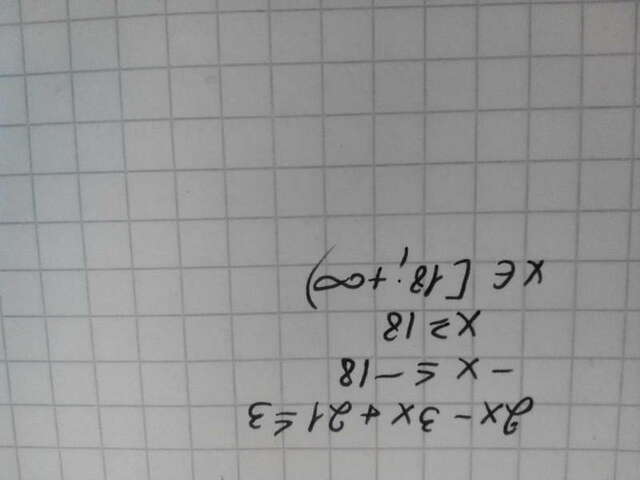 2x - 3x + 21 ≤ 3
- x ≤ -18
x ≥ 18
x ∈ [18; +∞)